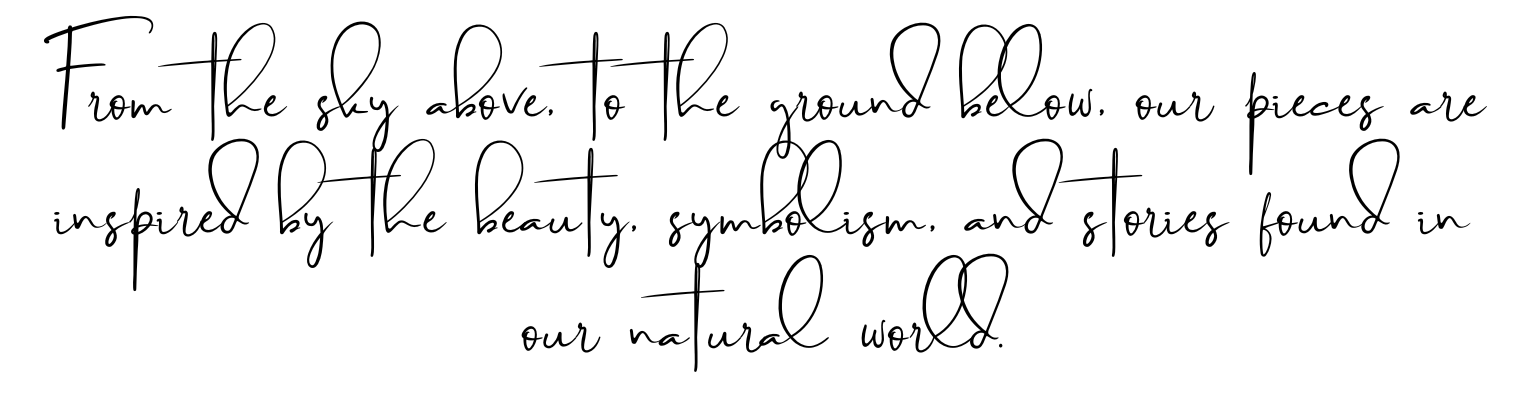 From the sky above, to the ground below, our pieces are
inspired by the beauty, symbolism, and stories found in
our natural world.